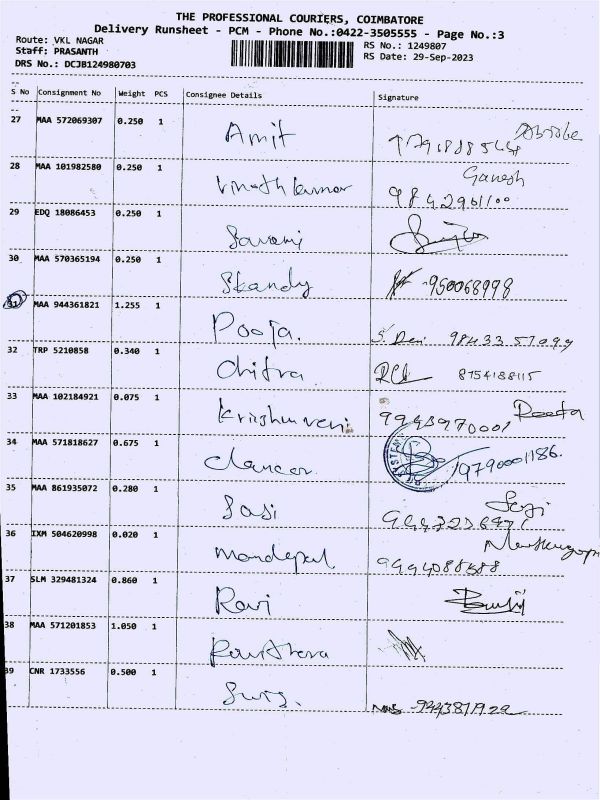 THE PROFESSIONAL COURIERS, COIMBATORE
Delivery Runsheet - PCM - Phone No.:0422-3505555 - Page No.:3
Route: VKL NAGAR
RS No.: 1249807
Staff: PRASANTH
RS Date: 29-Sep-2023
DRS No.: DCJB124980703
S No Consignment No Weight PCS Consignee Details Signature
27 MAA 572069307 0.250 1 Amit
28 MAA 101982580 0.250 1 Vinothkumar Ganesh
9842961100
29 EDQ 18086453 0.250 1
30 MAA 570365194 0.250 1 Skandy 950068998
31 MAA 944361821 1.255 1 Pooja. S. Devi
32 TRP 5210858 0.340 1 Chitra 8754188115
33 MAA 102184921 0.075 1 Krishnaveni
34 MAA 571818627 0.675 1 19790001186.
35 MAA 861935072 0.280 1 Sasi
36 IXM 504620998 0.020 1
37 SLM 329481324 0.860 1 Ravi
38 MAA 571201853 1.050 1
39 CNR 1733556 0.500 1